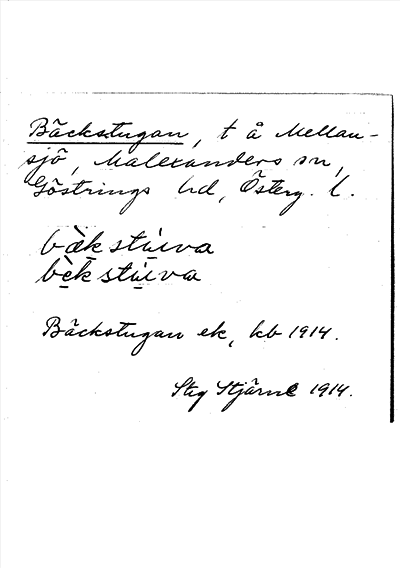 Bäckstugan, t å Mellan-
sjö, Malexanders sn,
Göstrings hd, Österg. l.
bæ̀kstúıva
bèkstúıva
Bäckstugan ek, kb 1914.
Stig Stjärne 1914.